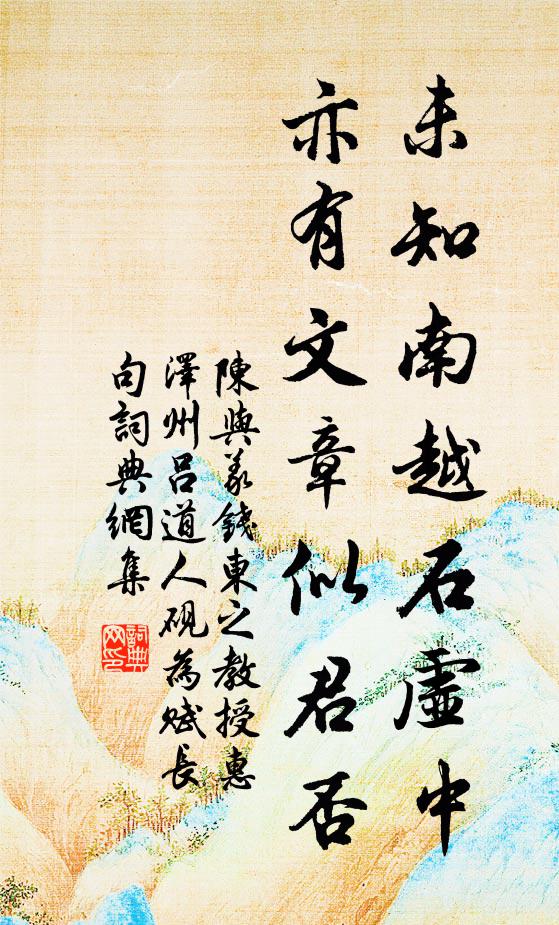 未知南越石虛中
亦有文章似君否
陳與義錢東之教授惠
澤州呂道人硯為賦長
句詞典網集
詞典
网印